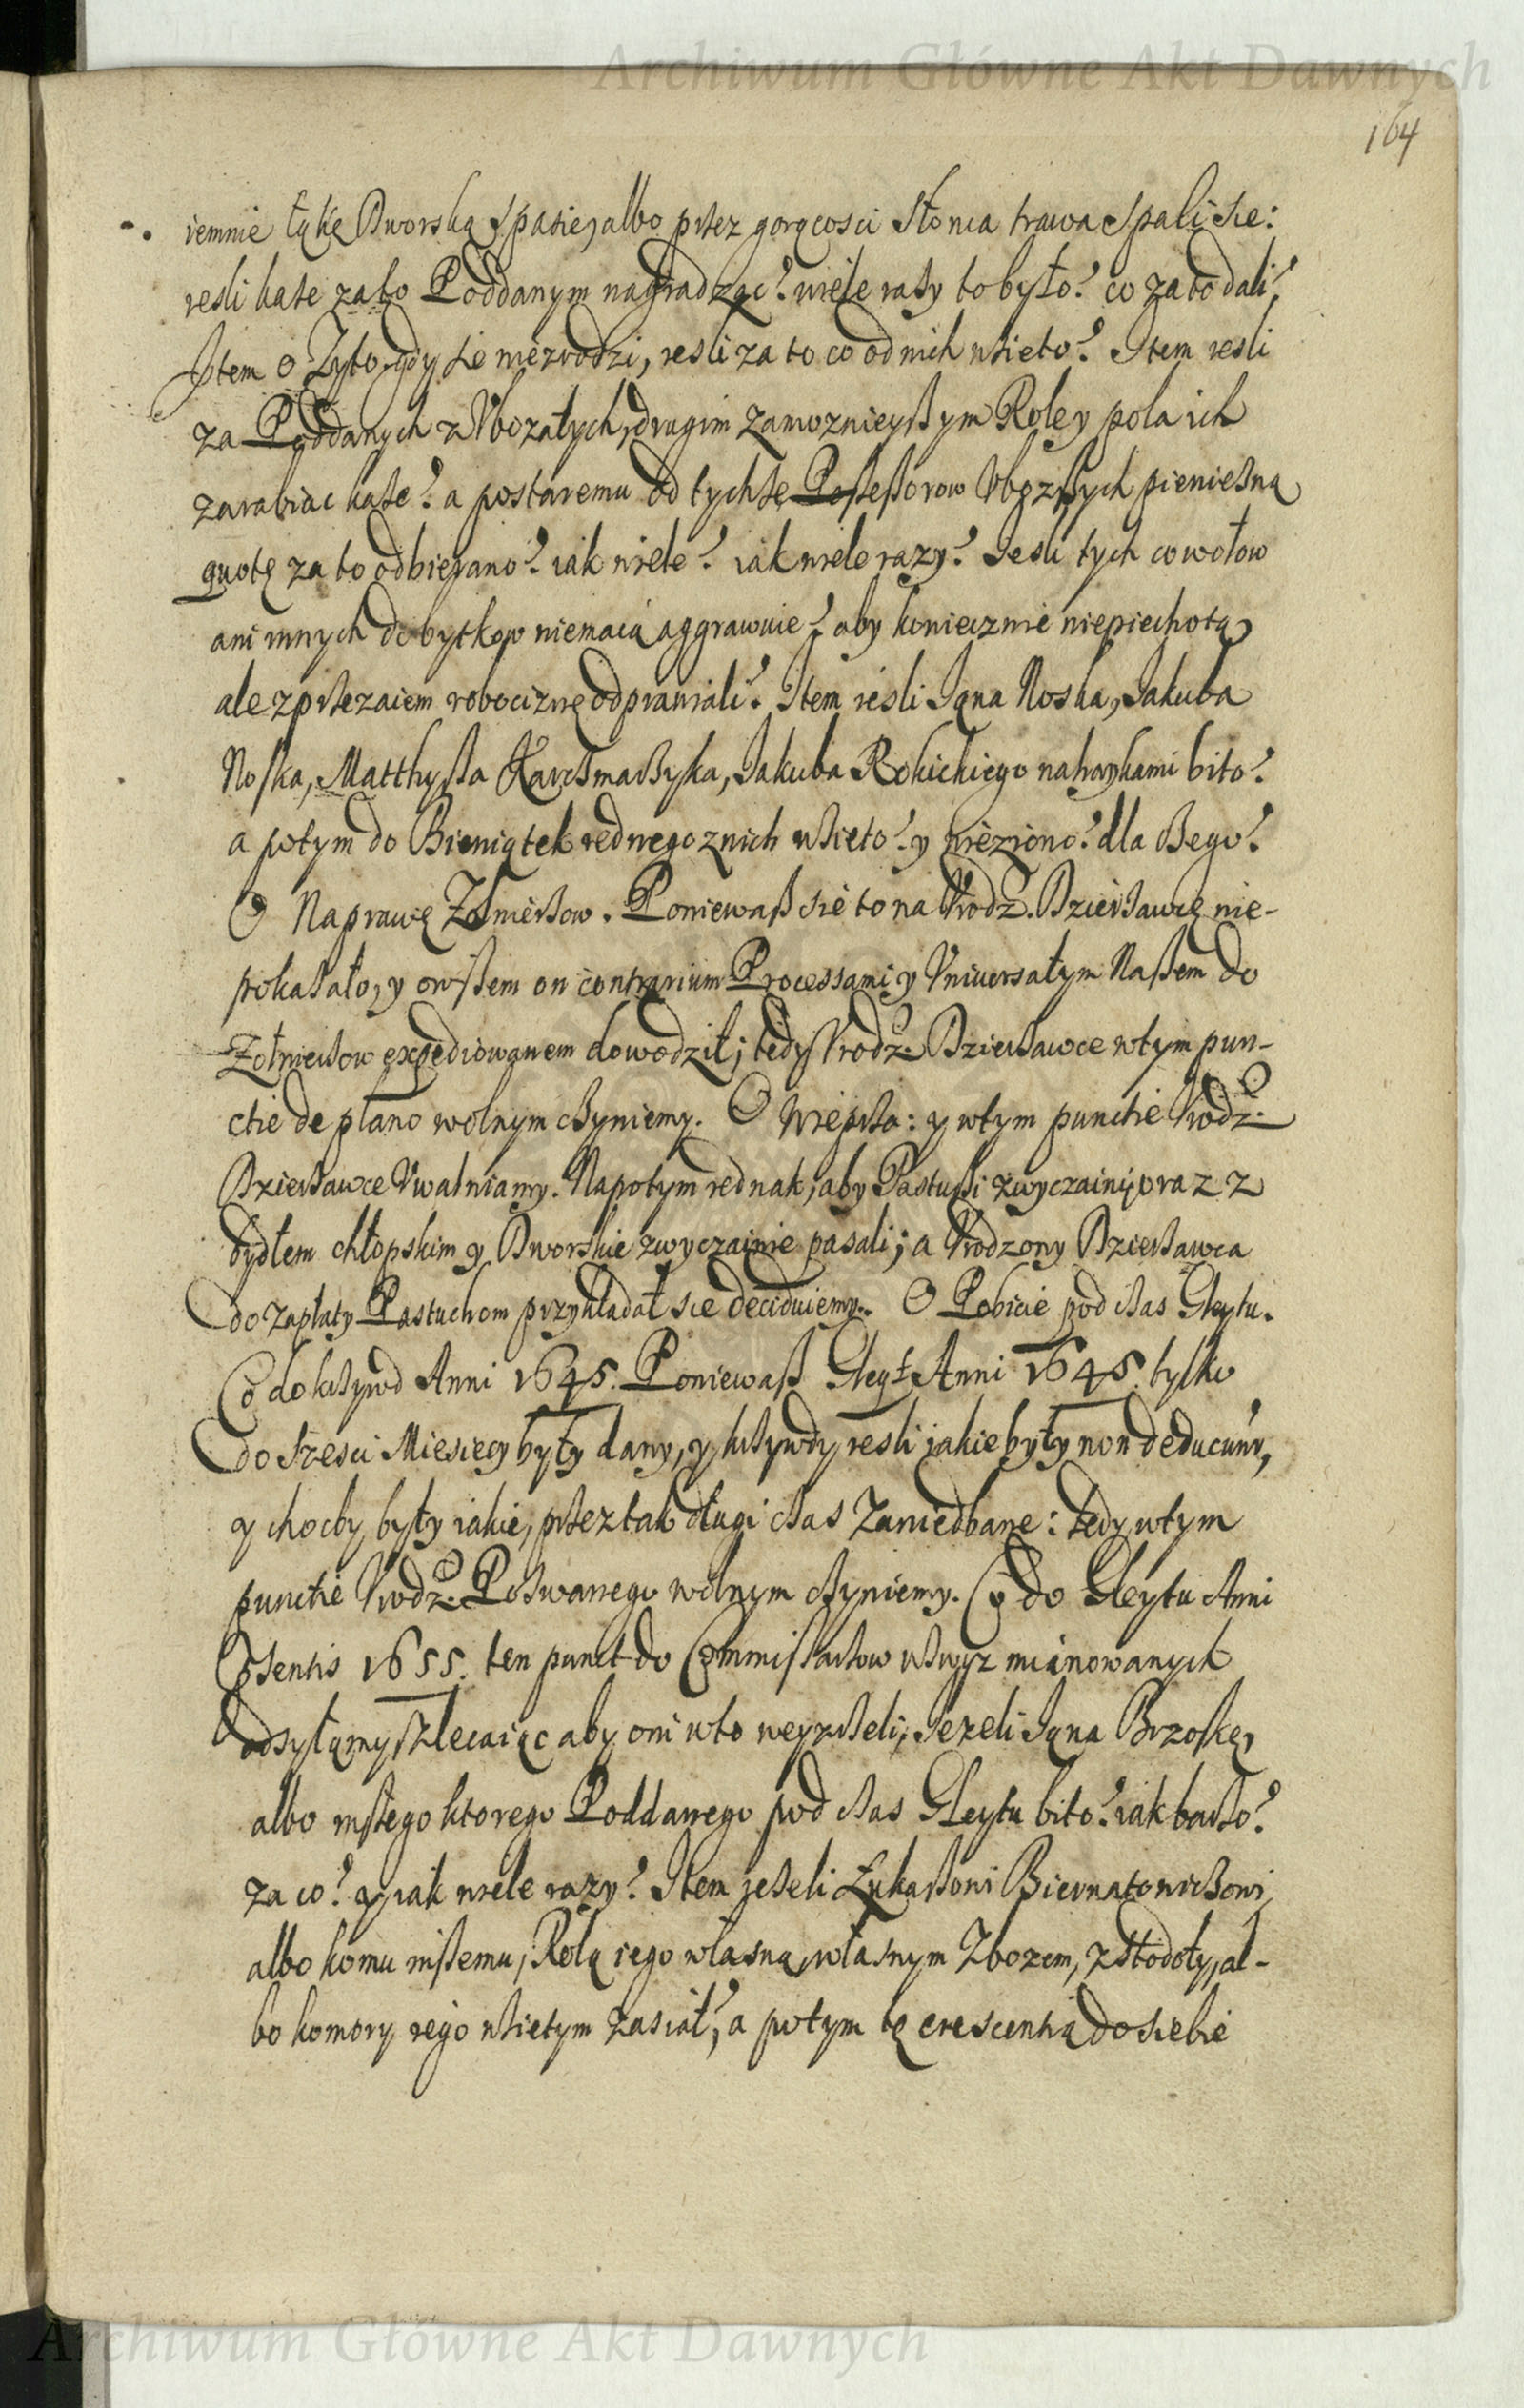 Archiwum Główne Akt Dawnych
164
iemnie łąkę Dworską spasie, albo przez gorącosci słonca trawa spali sie:
iesli każe za to Poddanym nagradzac? wiele razy to było? co za to dali?
Item o Zyto gdy sie niezrodzi, iesli za to co od nich wzieto? Item iesli
za Poddanych zUbozałych, drugim zamoznieyßym Role y pola ich
zarabiac każe? a postaremu od tychże Poßeßorow Ubozßych pienieżną
quotę za to odbierano? iak wiele? iak wiele razy? Iesli tych co wołow
ani innych dobytkow niemaią aggrawuie? aby koniecznie niepiechotą
ale zprzezaiem robociznę odprawiali? Item iesli Iana Noska, Iakuba
Noska, Matthyßa Karczmarzyka, Iakuba Rokickiego nahaykami bito?
a potym do Bieniątek iednego znich wzieto? y wieziono? dla czego?
O Naprawę Zołnierzow. Poniewaß sie to na Urodz. Dzierżawcę nie-
pokazało, y owßem on contrarium Processami y Uniwersałym Naßem do
Zołnierzow expediowanem dowodził; tedy Urodz. Dzierżawce wtym pun-
ctie de plano wolnym czyniemy. O Wieprza: y wtym punctie Urodz.
Dzierżawce Uwalniamy. Napotym iednak, aby Pastußi zwyczaini, oraz z
bydłem chłopskim y Dworskie zwyczainie pasali; a Urodzony Dzierżawca
do zapłaty Pastuchom przykładał sie deciduiemy. O Pobicie pod czas Gleytu.
Co do krzywd Anni 1645. Poniewaß Gleyt Anni 1645. tylko
do szesci Miesiecy były dany, y krzywdy iesli iakie były non deducunt,
y chocby były iakie, przez tak długi czas zaniedbane: tedy wtym
punctie Urodz. Pozwanego wolnym czyniemy. Co do Gleytu Anni
Przsentis 1655. ten punct do Commißarzow wzwyz mianowanych
odsyłamy, zlecaiąc aby oni w to weyrzeli, Iezeli Iana Brzoskę,
albo inßego ktorego Poddanego pod czas Gleytu bito? iak barzo?
za co? y iak wiele razy? Item ieżeli Łukaßowi Biernatowiczowi,
albo komu inßemu, Rolą iego własną, własnym Zbozem, z stodoły, al-
bo komory iego wzietym zasiał, a potym tę crescentią do siebie
Archiwum Główne Akt Dawnych